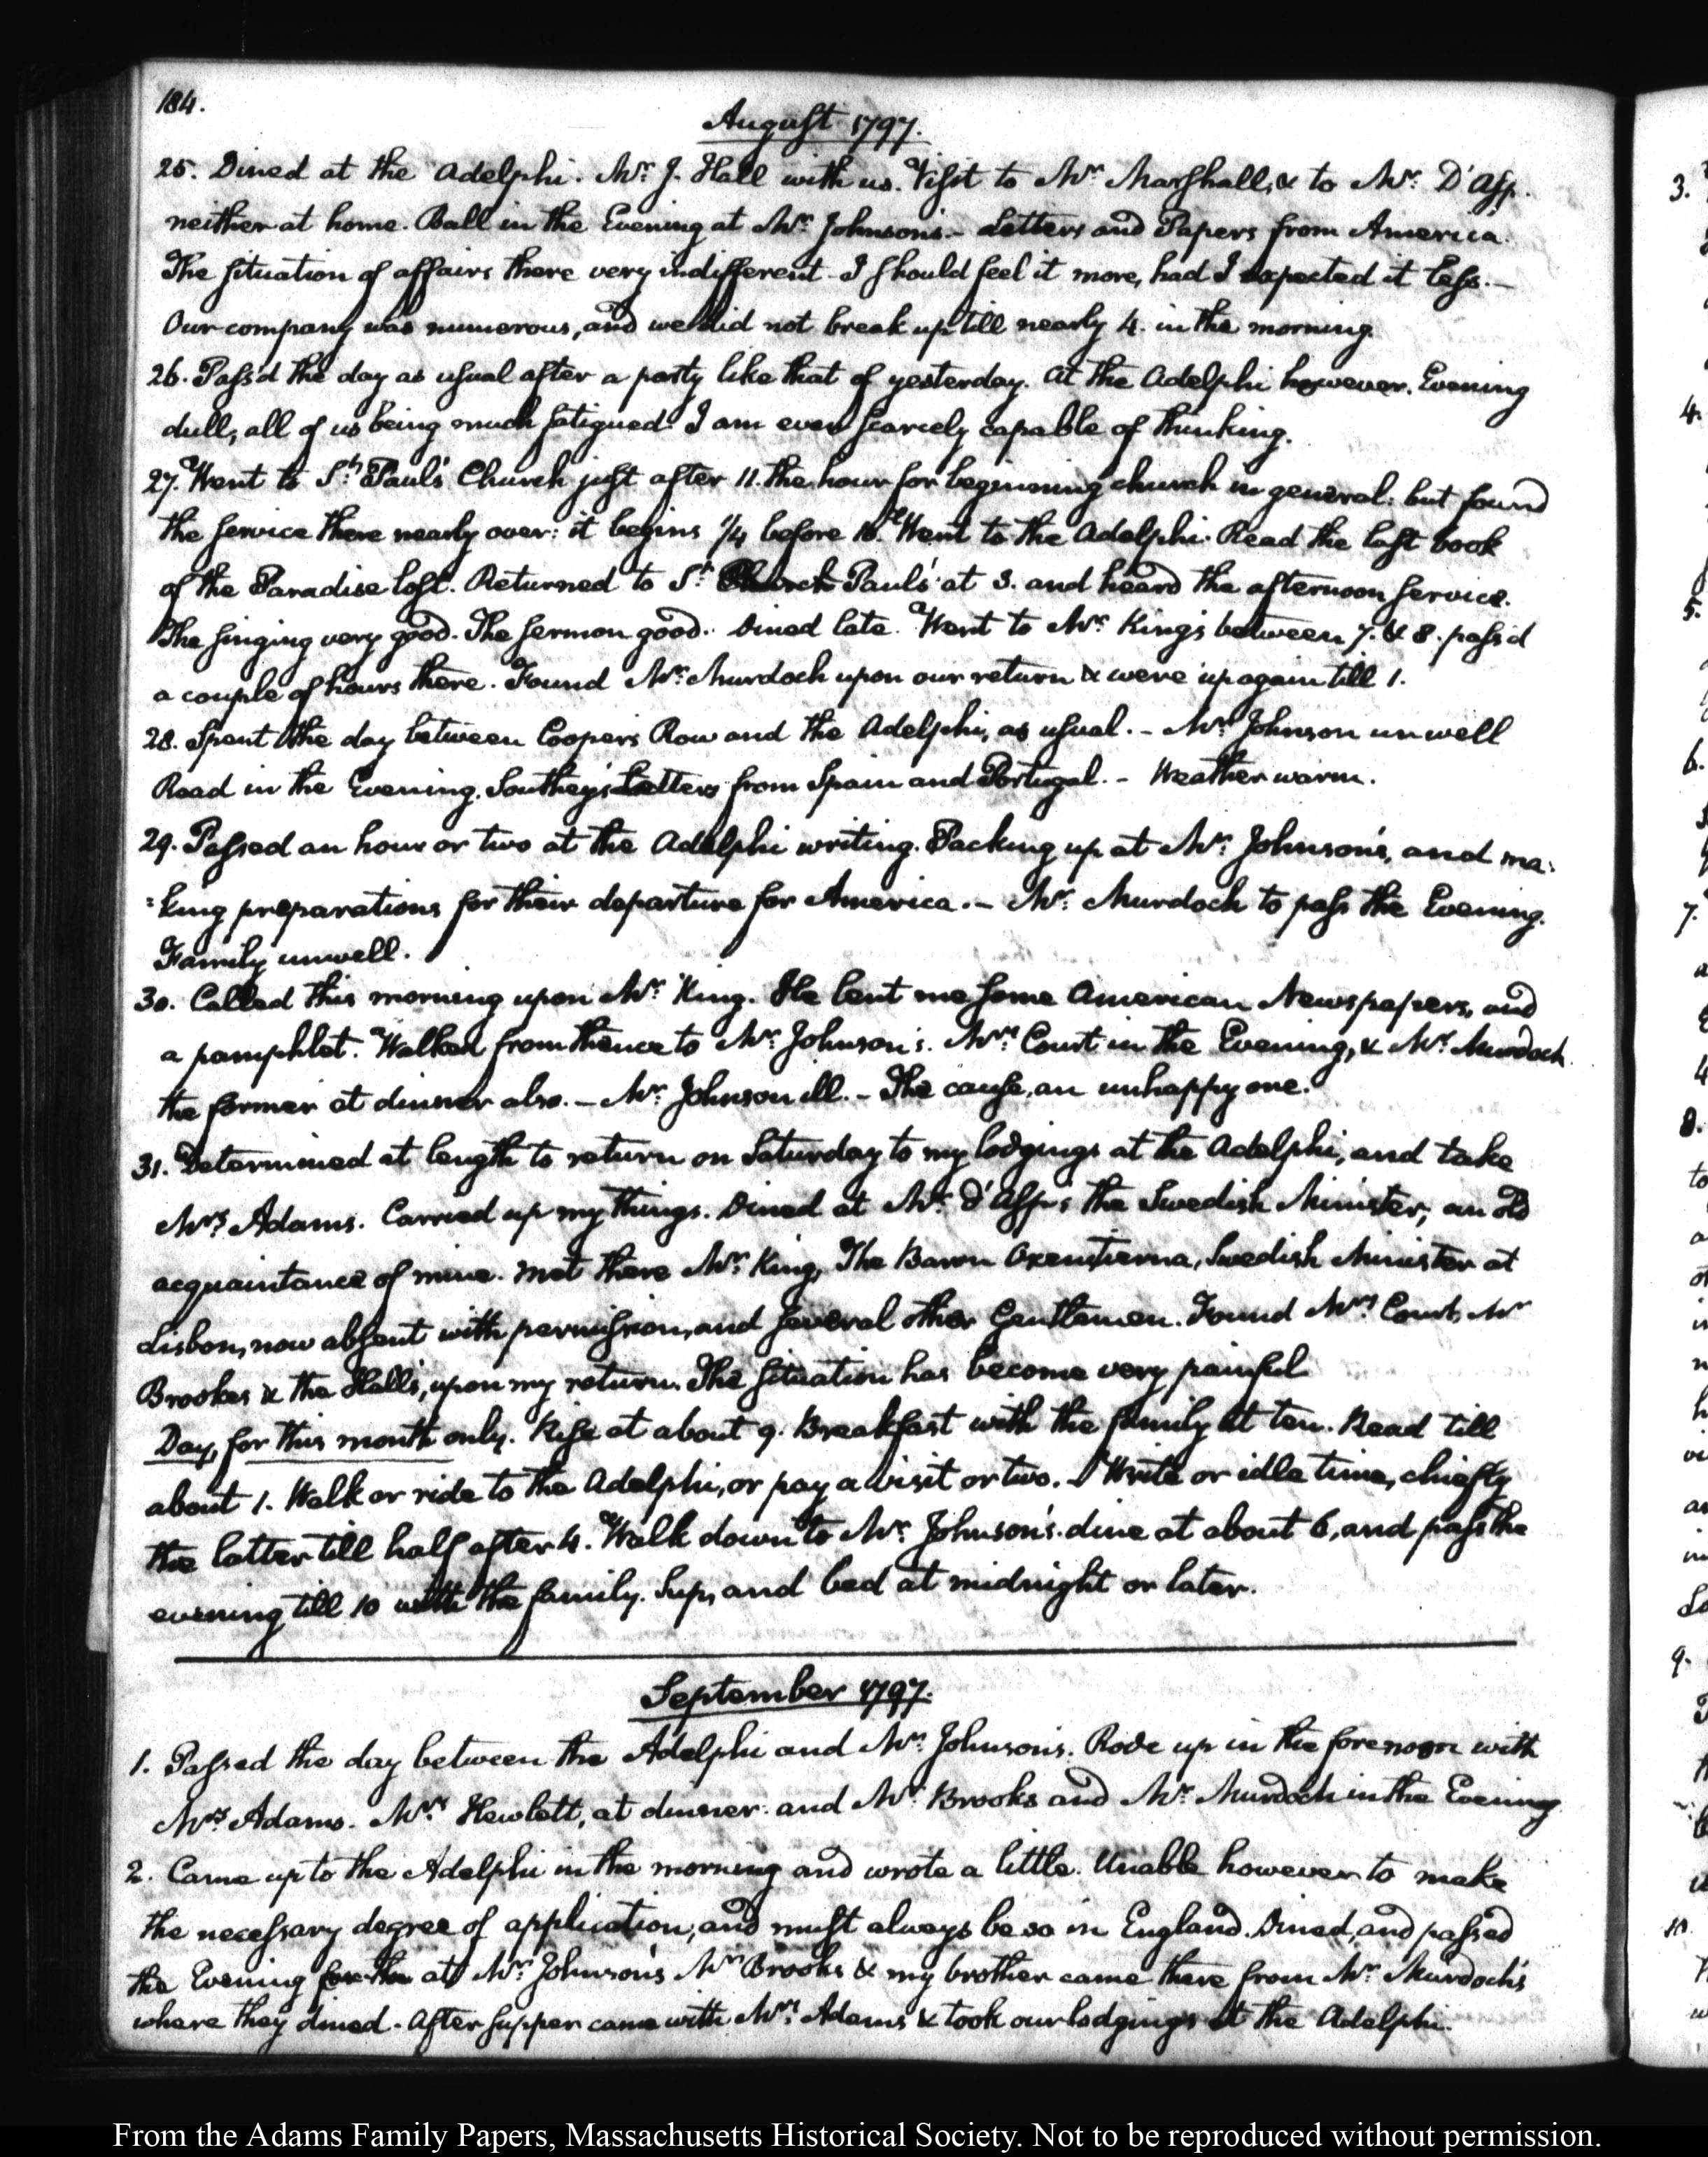 184.
August 1797.
25. Dined at the Adelphi. Mr. J. Hall with us. Visit to Mr. Marshall, & to Mr. D'Asp.
neither at home. Ball in the Evening at Mr. Johnson's.– Letters and Papers from America.
The situation of affairs there very indifferent – I should feel it more, had I expected it less.–
Our company was numerous, and we did not break up till nearly 4. in the morning.
26. Pass'd the day as usual after a party like that of yesterday. At the Adelphi however. Evening
dull, all of us being much fatigued. I am even scarcely capable of thinking.
27. Went to St. Paul's Church just after 11. the hour for beginning church in general: but found
the service there nearly over: it begins 1/4 before 10. Went to the Adelphi. Read the last book
of the Paradise lost. Returned to St. Church Pauls' at 3. and heard the afternoon service.
The singing very good. The sermon good. Dined late. Went to Mr. King's between 7. & 8. pass'd
a couple of hours there. Found Mr. Murdoch upon our return & were up again till 1.
28. Spent the day between Coopers Row and the Adelphi, as usual.– Mr. Johnson unwell
Read in the Evening. Southey's Letters from Spain and Portugal.– Weather warm.
29. Passed an hour or two at the Adelphi writing. Packing up at Mr. Johnson's, and ma:
:king preparations for their departure for America.– Mr. Murdoch to pass the Evening.
Family unwell.
30. Called this morning upon Mr. King. He lent me some American Newspapers, and
a pamphlet. Walked from thence to Mr. Johnson's. Mrs. Court in the Evening, & Mr. Murdoch
the former at dinner also.– Mr. Johnson ill.– The cause, an unhappy one.
31. Determined at length to return on Saturday to my lodgings at the Adelphi, and take
Mrs. Adams. Carried up my things. Dined at Mr. d'Asp's the Swedish Minister, an old
acquaintance of mine. Met there Mr. King, The Baron Oxenstierna, Swedish Minister at
Lisbon, now absent with permission, and several other Gentlemen. Found Mrs. Court, Mr
Brookes & the Halls, upon my return. The situation has become very painful
Day, for this month only. Rise at about 9. Breakfast with the family at ten. Read till
about 1. Walk or ride to the Adelphi, or pay a visit or two. Write or idle time, chiefly
the latter till half after 4. Walk down to Mr. Johnson's. dine at about 6, and pass the
evening till 10 with the family. Sup, and bed at midnight or later.
September 1797.
1. Passed the day between the Adelphi and Mr. Johnson's. Rode up in the forenoon with
Mrs. Adams. Mrs. Hewlett, at dinner: and Mr. Brooks and Mr. Murdoch in the Evening
2. Came up to the Adelphi in the morning and wrote a little. Unable however to make
the necessary degree of application, and must always be so in England. Dined, and passed
the Evening at Mr. Johnson's Mr Brooks & my brother came there from Mr. Murdoch's
where they dined. After supper came with Mrs. Adams & took our lodgings at the Adelphi.
From the Adams Family Papers, Massachusetts Historical Society. Not to be reproduced without permission.